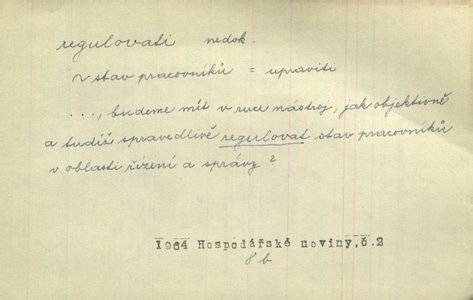 regulovati nedok.
~ stav pracovníků = upraviti
..., budeme mít v ruce nástroj, jak objektivně
a tudíž spravedlivě regulovat stav pracovníků
v oblasti řízení a správy?
1964 Hospodářské noviny,č.2
8b